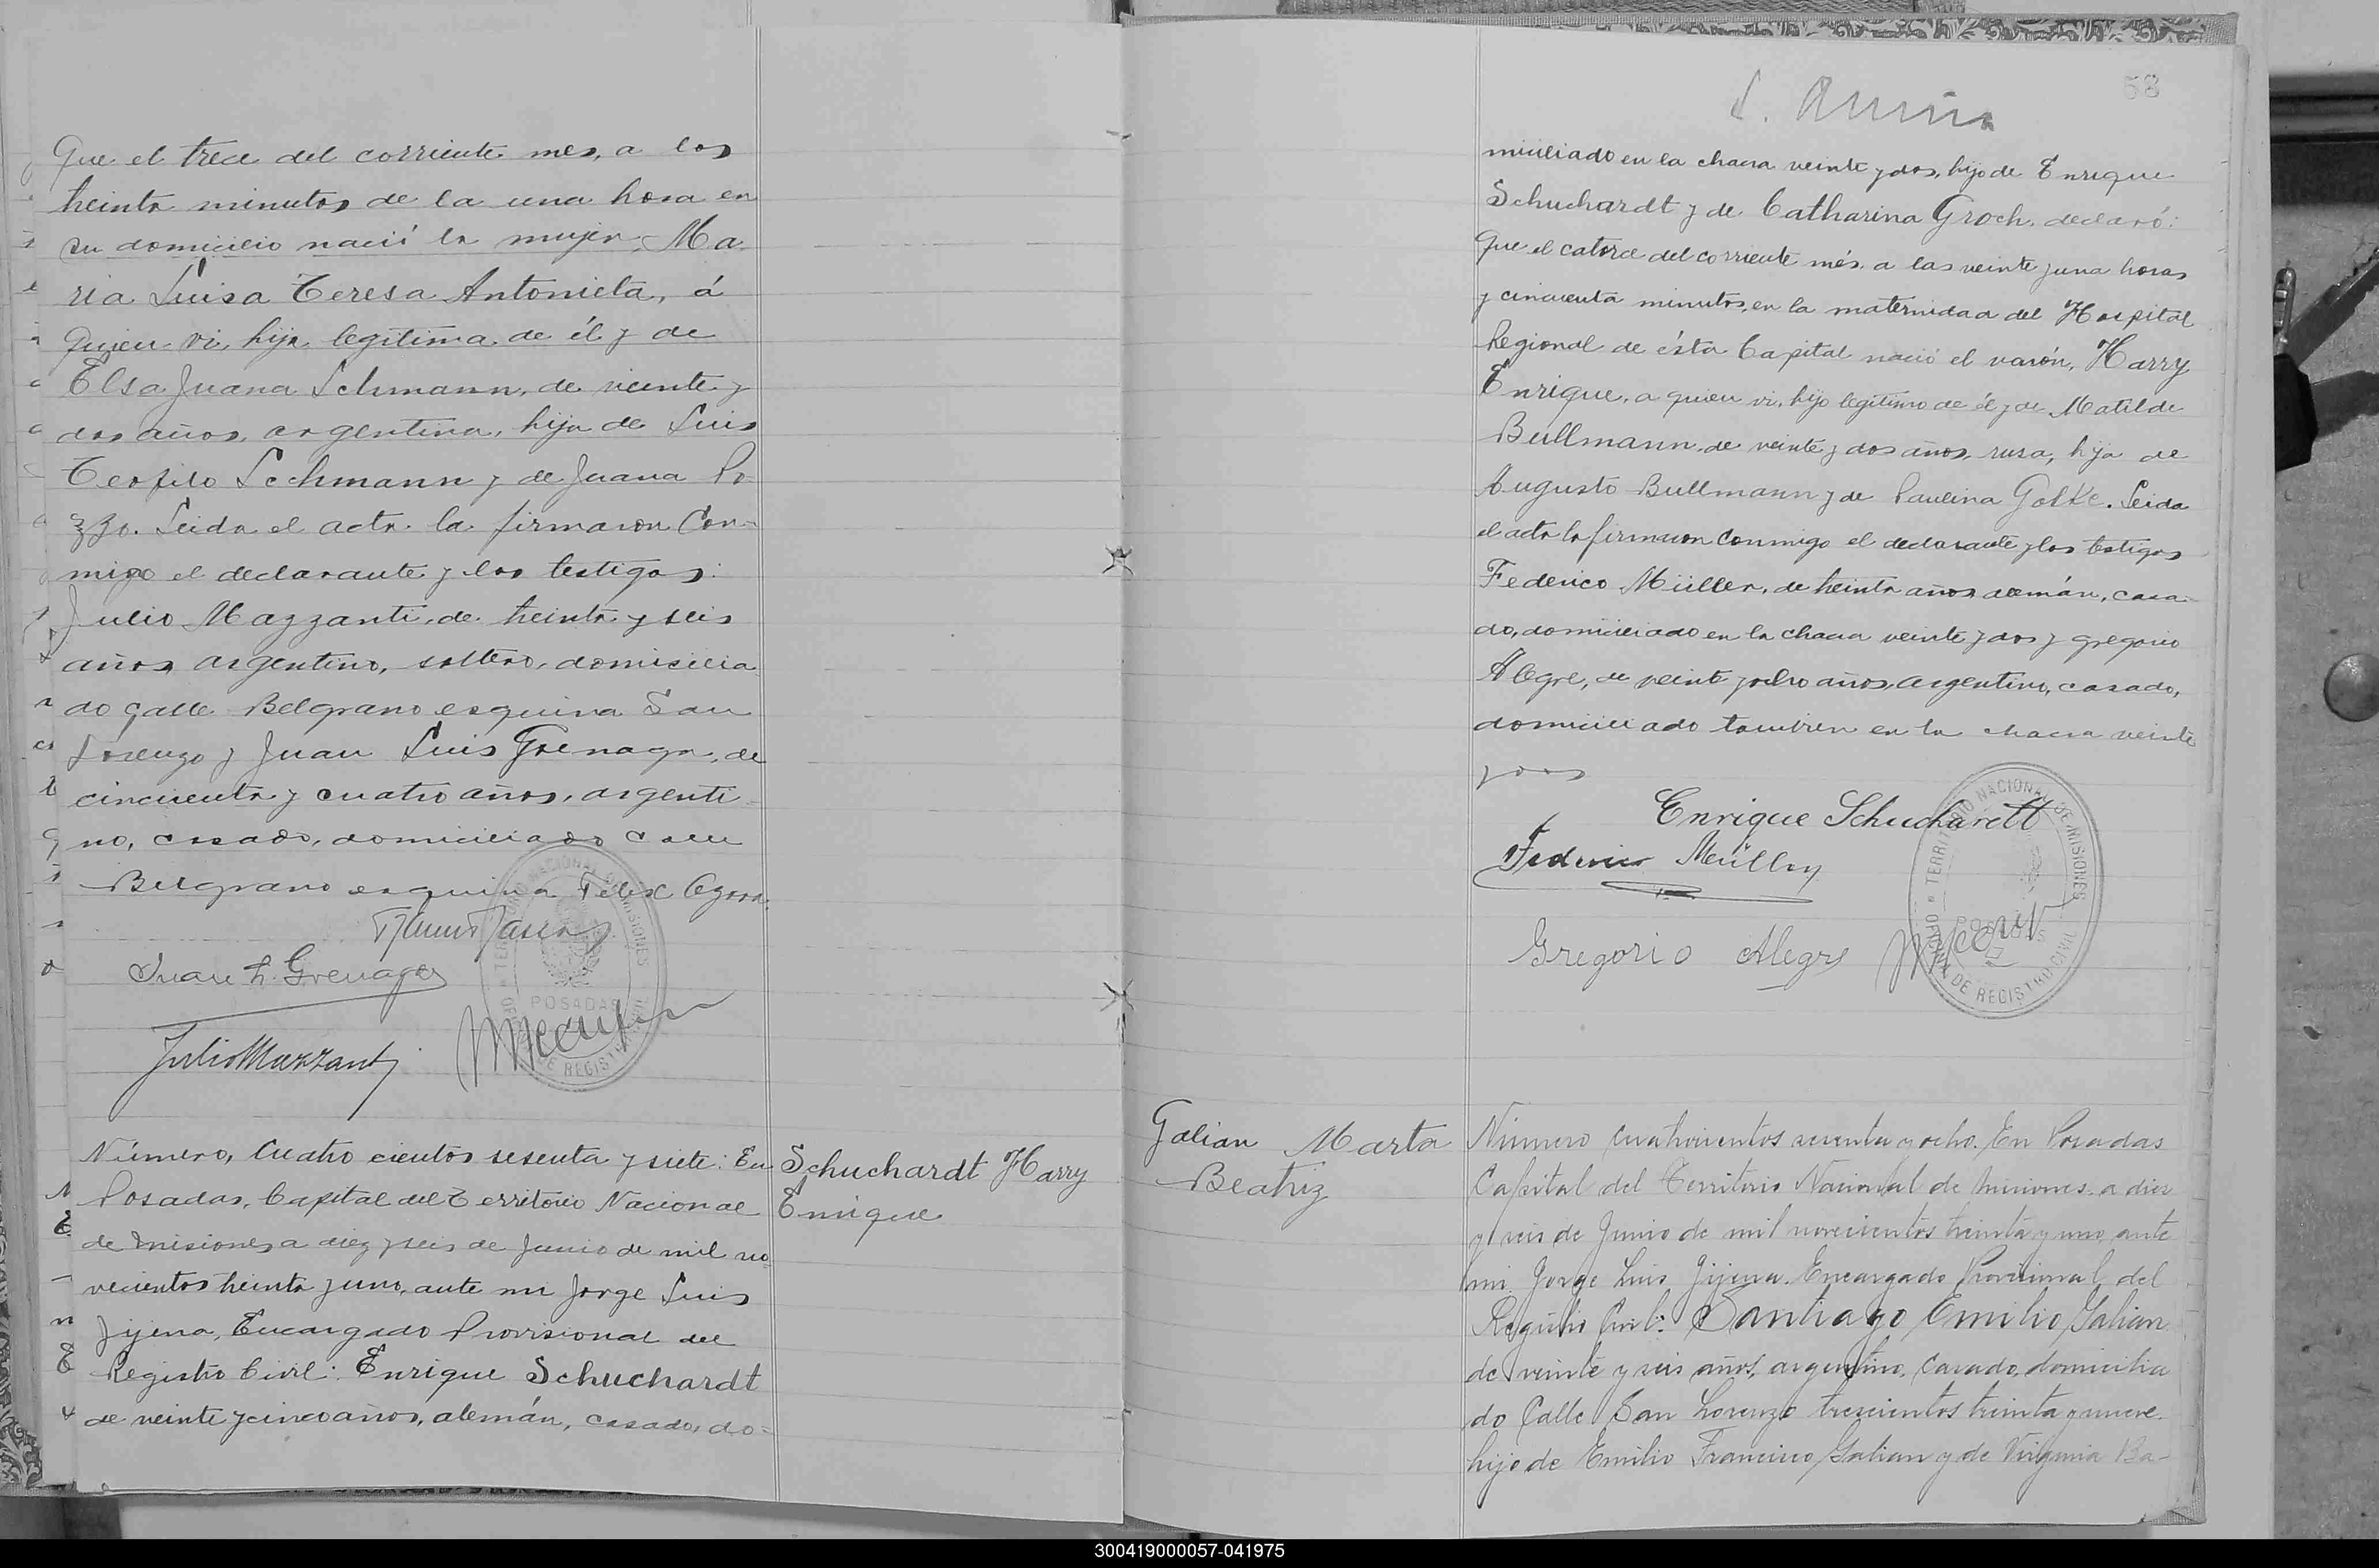 Que el trece del corriente mes, a los
treinta minutos de la una hora en
su domicilio nació la mujer, Ma
ria Luisa Teresa Antonieta, á
quien vi, hija legítima de él y de
Elsa Juana Schmann, de veinte y
dos años, argentina, hija de Luis
Teofilo Schmann y de Juana Po
zzo. Leida el acta la firmaron con-
migo el declarante y los testigos:
Julio Mazzanti, de treinta y seis
años, argentino, soltero, domicilia
do calle Belgrano esquina San
Lorenzo y Juan Luis Grenaga, de
cincuenta y cuatro años, argenti-
no, casado, domiciliado calle
Belgrano esquina Felix Azara.
Juan L. Grenaga
Julio Mazzanti
POSADAS
Número, Cuatro cientos sesenta y siete: En
Posadas, Capital del Territorio Nacional
de Misiones a diez y seis de Junio de mil no
vecientos treinta y uno, ante mi Jorge Luis
Jijena, Encargado Provisional del
Registro Civil: Enrique Schuchardt
de veinte y cinco años, alemán, casado, do=
Schuchardt Harry
Enrique
58
miciliado en la chacra veinte y dos, hijo de Enrique
Schuchardt y de Catharina Groch, declaró:
Que el catorce del corriente més a las veinte y una horas
y cincuenta minutos, en la maternidad del Hospital
Regional de ésta Capital nació el varón, Harry
Enrique, a quien vi, hijo legítimo de él y de Matilde
Bullmann, de veinte y dos años, rusa, hija de
Augusto Bullmann y de Paulina Golke. Leida
el acta la firmaron conmigo el declarante y los testigos
Federico Müller, de treinta años alemán, casa-
do, domiciliado en la chacra veinte y dos y Gregorio
Alegre, de veinte y ocho años, argentino, casado,
domiciliado tambien en la chacra veinte
y dos
Enrique Schuchardt
Federico Müller
Gregorio Alegre
TERRITORIO NACIONAL DE MISIONES
POSADAS
OFICINA DE REGISTRO CIVIL
Galian Marta
Beatriz
Número cuatrocientos sesenta y ocho. En Posadas
Capital del Territorio Nacional de Misiones a diez
y seis de Junio de mil novecientos treinta y uno, ante
mi Jorge Luis Jijena. Encargado Provisional del
Registro Civil: Santiago Emilio Galian
de veinte y seis años, argentino, casado, domicilia
do Calle San Lorenzo trescientos treinta y nueve.
hijo de Emilio Francisco Galian y de Virginia Ba-
300419000057-041975